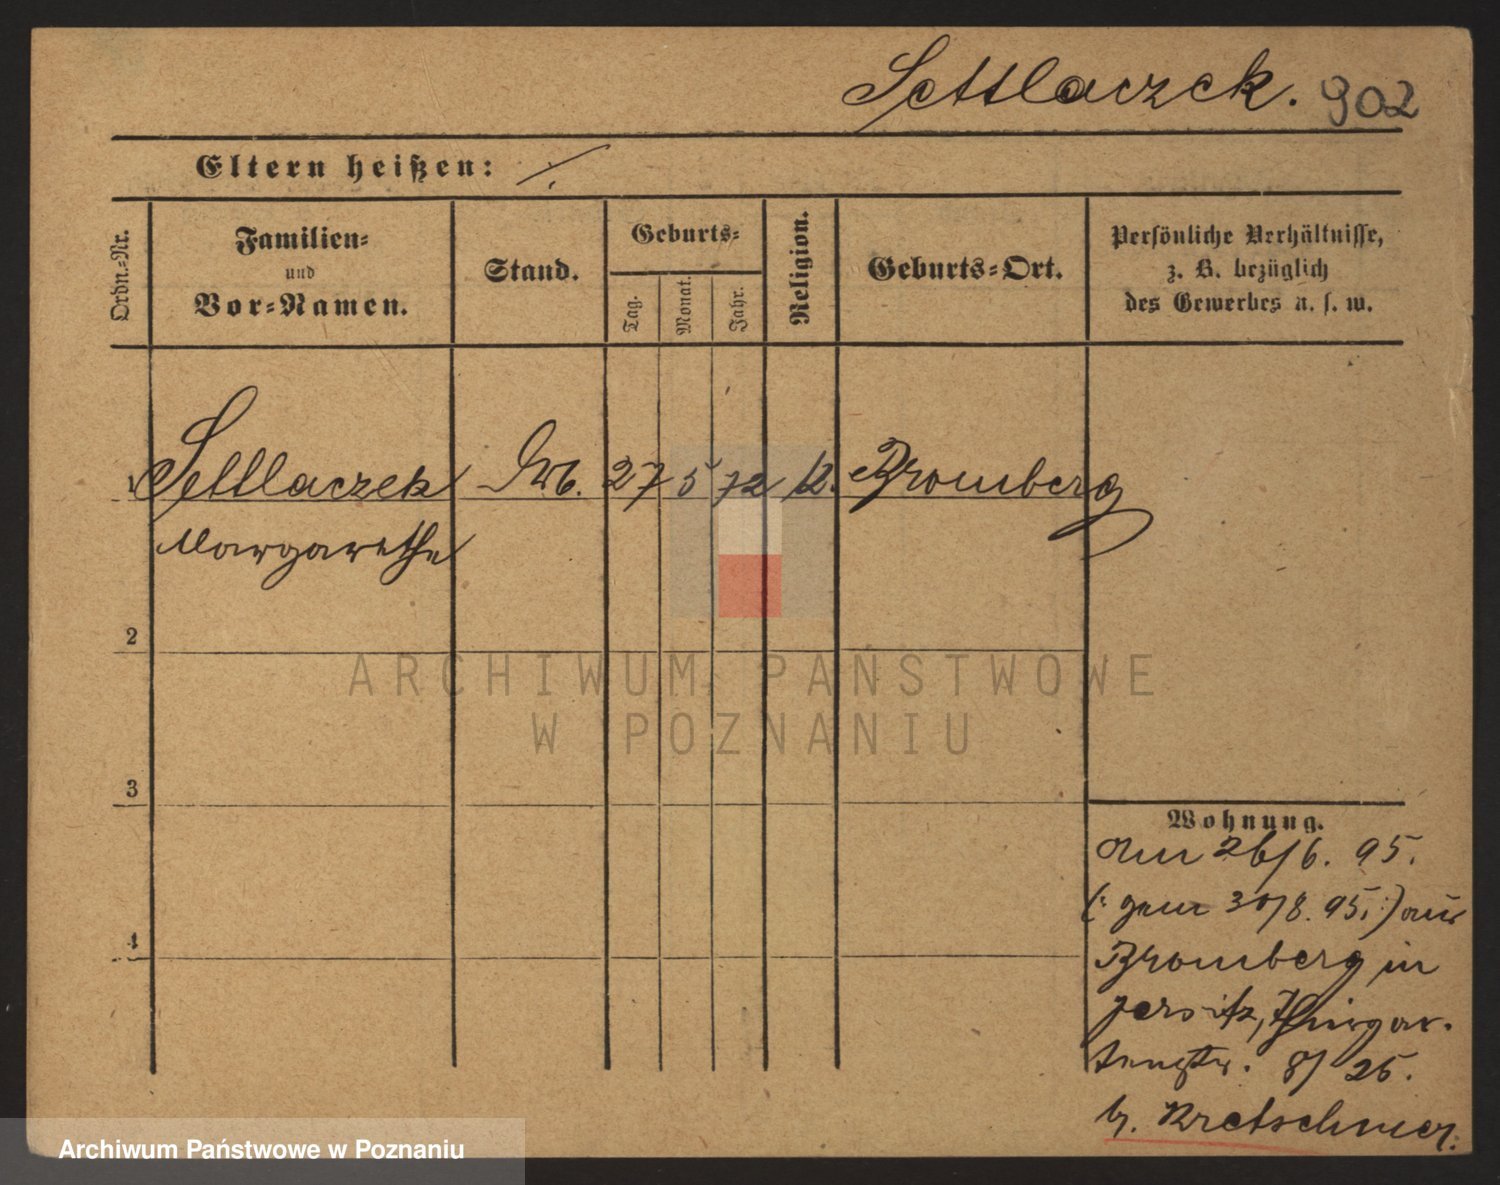 Settlaczek. 902
Eltern heißen: ./.
Ordn.-Nr.
Familien-
und
Vor-Namen.
Stand.
Geburts-
Tag.
Monat.
Jahr.
Religion.
Geburts-Ort.
Persönliche Verhältnisse,
z. B. bezüglich
des Gewerbes u. s. w.
1 Settlaczek 27 5 72 Bromberg
Margarethe
2
3
4
Wohnung.
Am 26/6. 95.
(: gem 30/8. 95. :) aus
Bromberg in
Jersitz, Thiergar-
tenstr. 8/ 25.
b. Kretschmer.
ARCHIWUM PAŃSTWOWE
W POZNANIU
Archiwum Państwowe w Poznaniu